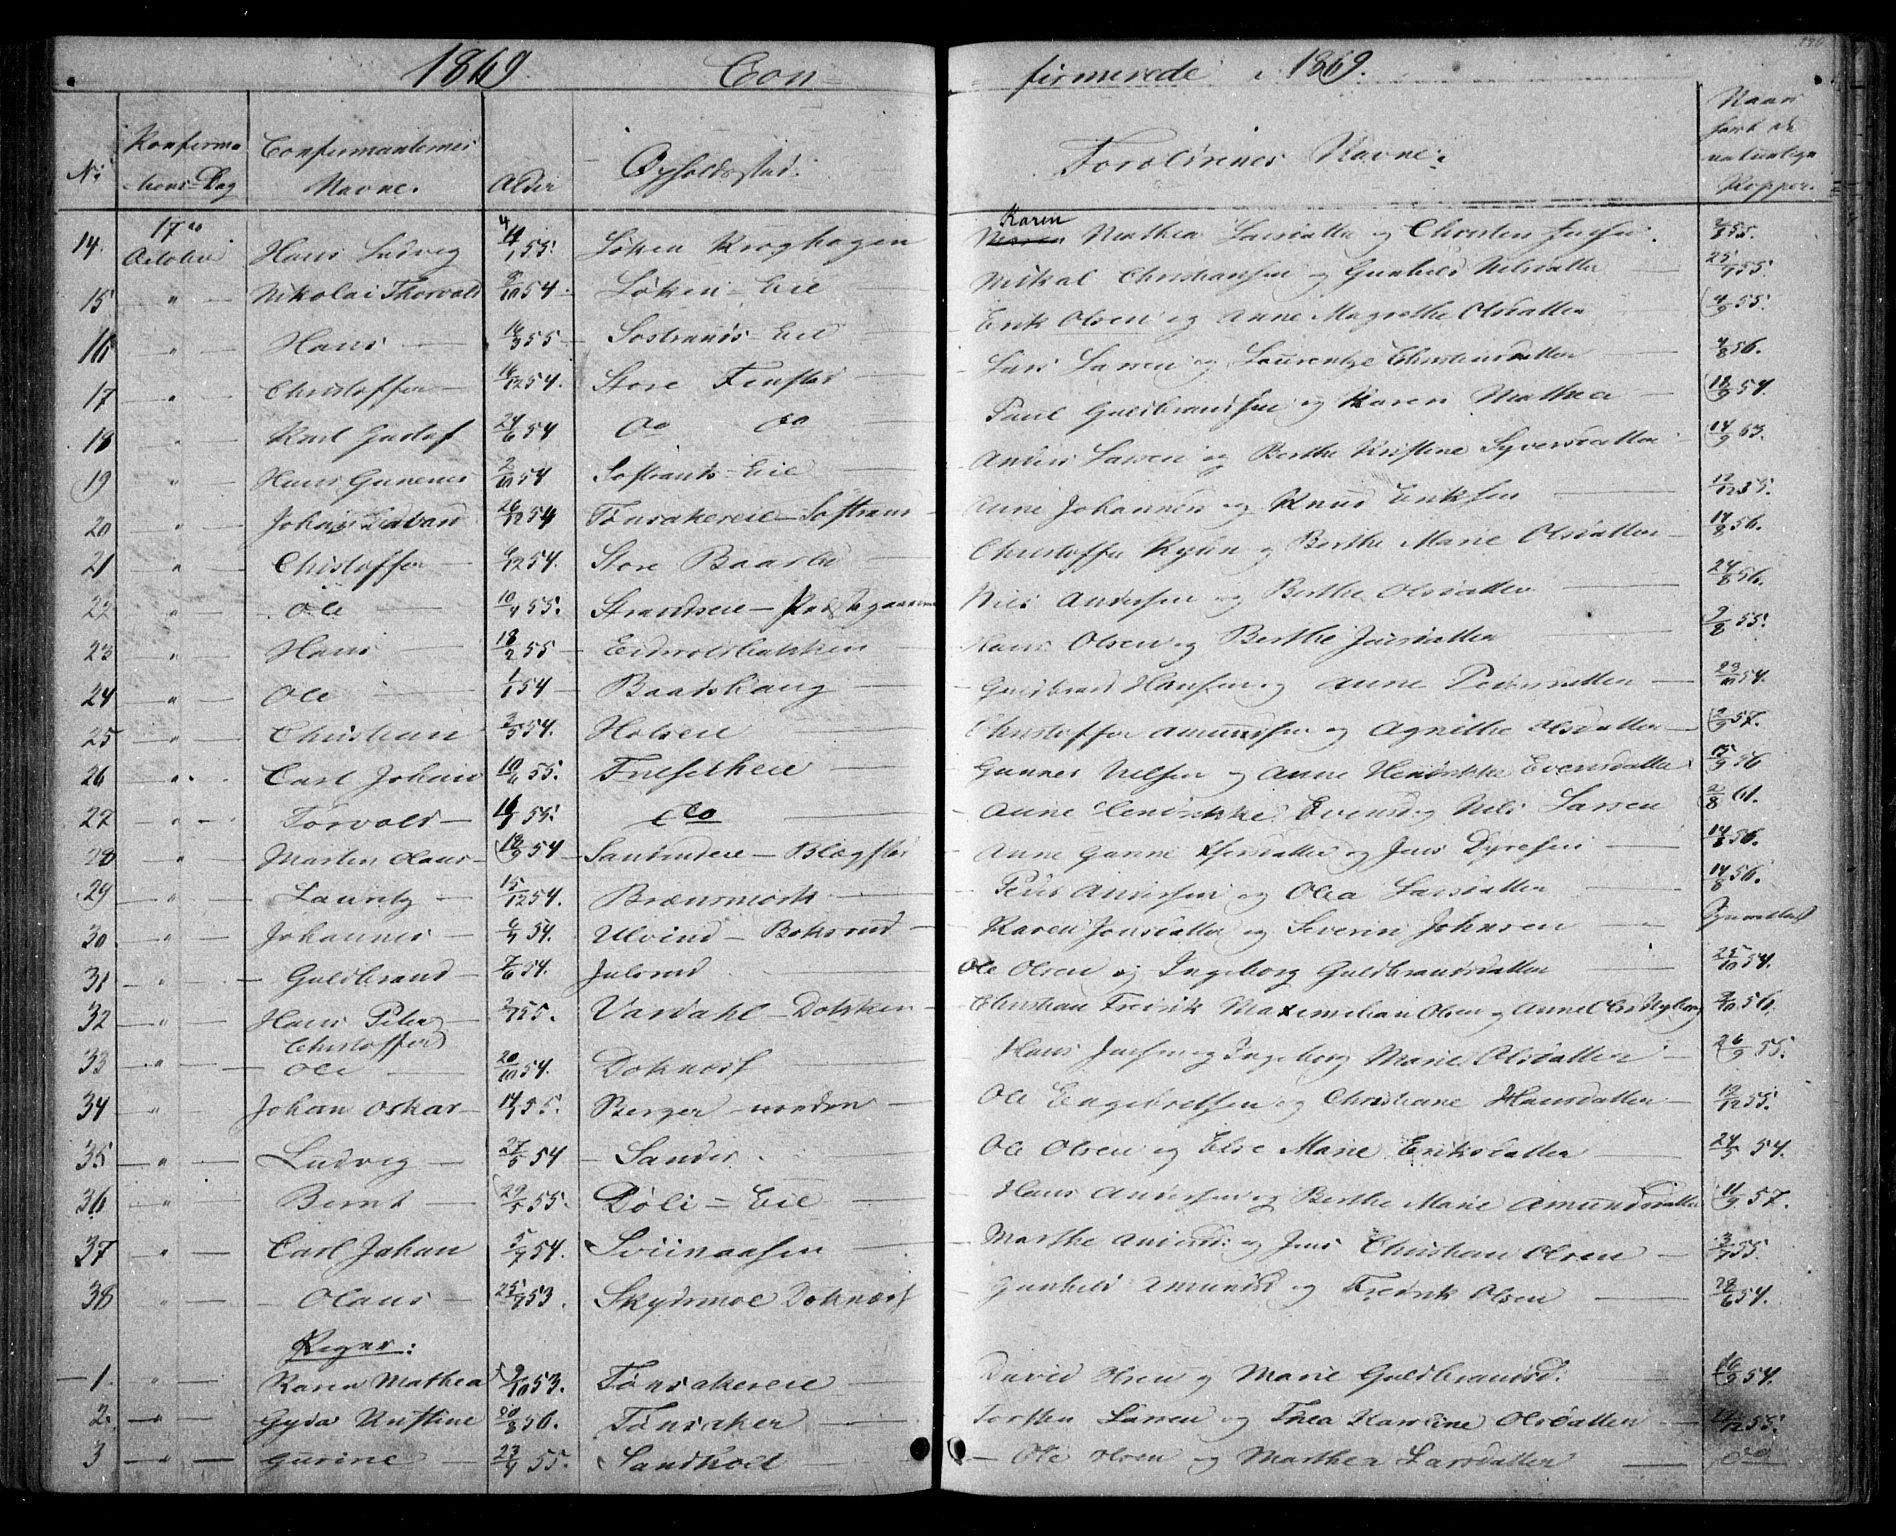 1869 Con- firmerede i 1869.
No Konfermations-Dag Confirmanternes Navne. Alder Opholdssted. Forældrenes Navne. Naar havt de naturlige Kopper.
14. 17de October Hans Ludvig 55. Løken Kroghagen Karen Mathea Larsdatter og Christen Jensen. 2/8 55.
15 " Nikolai Thorvald 9/10 54. Løken-Eie Mikal Christiansen og Gunhild Nilsdatter 25/7 55.
16 " Hans 16/3 55 Sostrands-Eie Erik Olsen og Anne Magrethe Olsdatter 4/9 55.
17 " Christoffer 16/12 54. Store Finstad Lars Larsen og Laurentze Christensdatter 4/8 56.
18 " Karl Gustaf 24/6 54 do do Paul Guldbrandsen og Karen Mathea 18/9 54.
19 " Hans Gunerius 2/10 54 Sostrands-Eie Anders Larsen og Berthe Kristine Syversdatter 14/9 63.
20 " Johan Edvard 26/12 54 Tønsakereie-Sostrand Anne Johannes og Knud Eriksen 12/12 55.
21 " Christoffer 6/12 54. Store Baarli Christoffer og Berthe Marie Olsdatter 14/8 56.
22 " Ole 10/4 55. Strandseie- Nils Andersen og Berthe Olsdatter 24/8 56.
23 " Hans 18/2 55 Eidsvoldsbakken Hans Olsen og Berthe Jensdatter 2/8 55.
24 " Ole 1/1 54 Baadshaug Guldbrand Hansen og Anne Pedersdatter 23/10 54.
25 " Christian 3/5 54. Holseie Christoffer Amundsen og Agnethe Olsdatter 2/9 57.
26 " Carl Johan 10/6 55. Gunner Nilsen og Anne Hendrikke Evensdatter 15/9 56
27 " Torvald 55. do Anne Hendrikke Evensd og Nils Larsen 2/8 61.
28 " Martin Olaus 18/9 54 Anne Gurine og Jens Dyresen 14/8 56.
29 " Lauritz 15/12 54. Brænsmork Peder Andersen og Olea Larsdatter 14/8 56.
30 " Johannes 6/9 54. Ulvind-Boksrud Karen Jensdatter og Severin Johnsen
31 " Guldbrand 7/6 54. Julsrud Ole Olsen og Ingeborg Guldbrandsdatter 25/10 54.
32 " Hans Peter Christoffer 2/7 55. Vardahl-Dokken Christian Fredrik Maximilian Olsen og Anne Nyborg 9/10 56.
33 " Ole 20/10 54. Doknæs Hans Jensen og Ingeborg Marie Olsdatter 26/9 55.
34 " Johan Oskar 14/1 55. Berger-norden Ole Engebretsen og Christiane Hansdatter 12/12 55.
35 " Ludvig 27/5 54 Sander. Ole Olsen og Else Marie Eriksdatter 24/5 54.
36 " Bernt 29/5 55. Døli-Eie Hans Andersen og Berthe Marie Amundsdatter 11/9 57.
37 " Carl Johan 5/7 54. Sviinaasen Marthe Amunds og Jens Christian Olsen 3/7 55.
38 Olaus 25/7 53. Skydsmoe Doknæs Gunhild Amundsd og Fredrik Olsen 28/6 54.
Piger:
1. " Karen Mathea 9/10 53. Tønsakereie David Olsen og Marie Guldbrandsd. 16/9 54.
2. " Gyda Kristine 30/8 56. Tønsaker Torsten Larsen og Thea Karoline Olsdatter 12/12 55.
3 " Gurine 23/9 55. Sandholt Ole Olsen og Marthea Larsdatter do